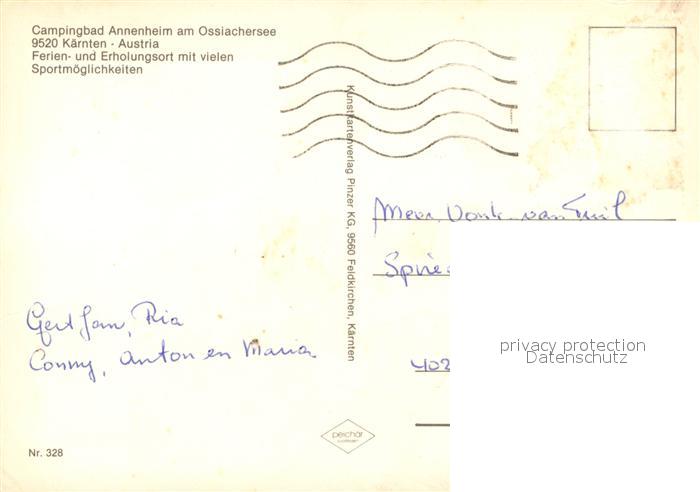 Campingbad Annenheim am Ossiachersee
9520 Kärnten - Austria
Ferien- und Erholungsort mit vielen
Sportmöglichkeiten
Kunstkartenverlag Pinzer KG, 9560 Feldkirchen, Kärnten
Mevr. Vonk-van
Gert Jan, Ria
Conny, Anton en Maria
402
privacy protection
Datenschutz
peichär
Nr. 328